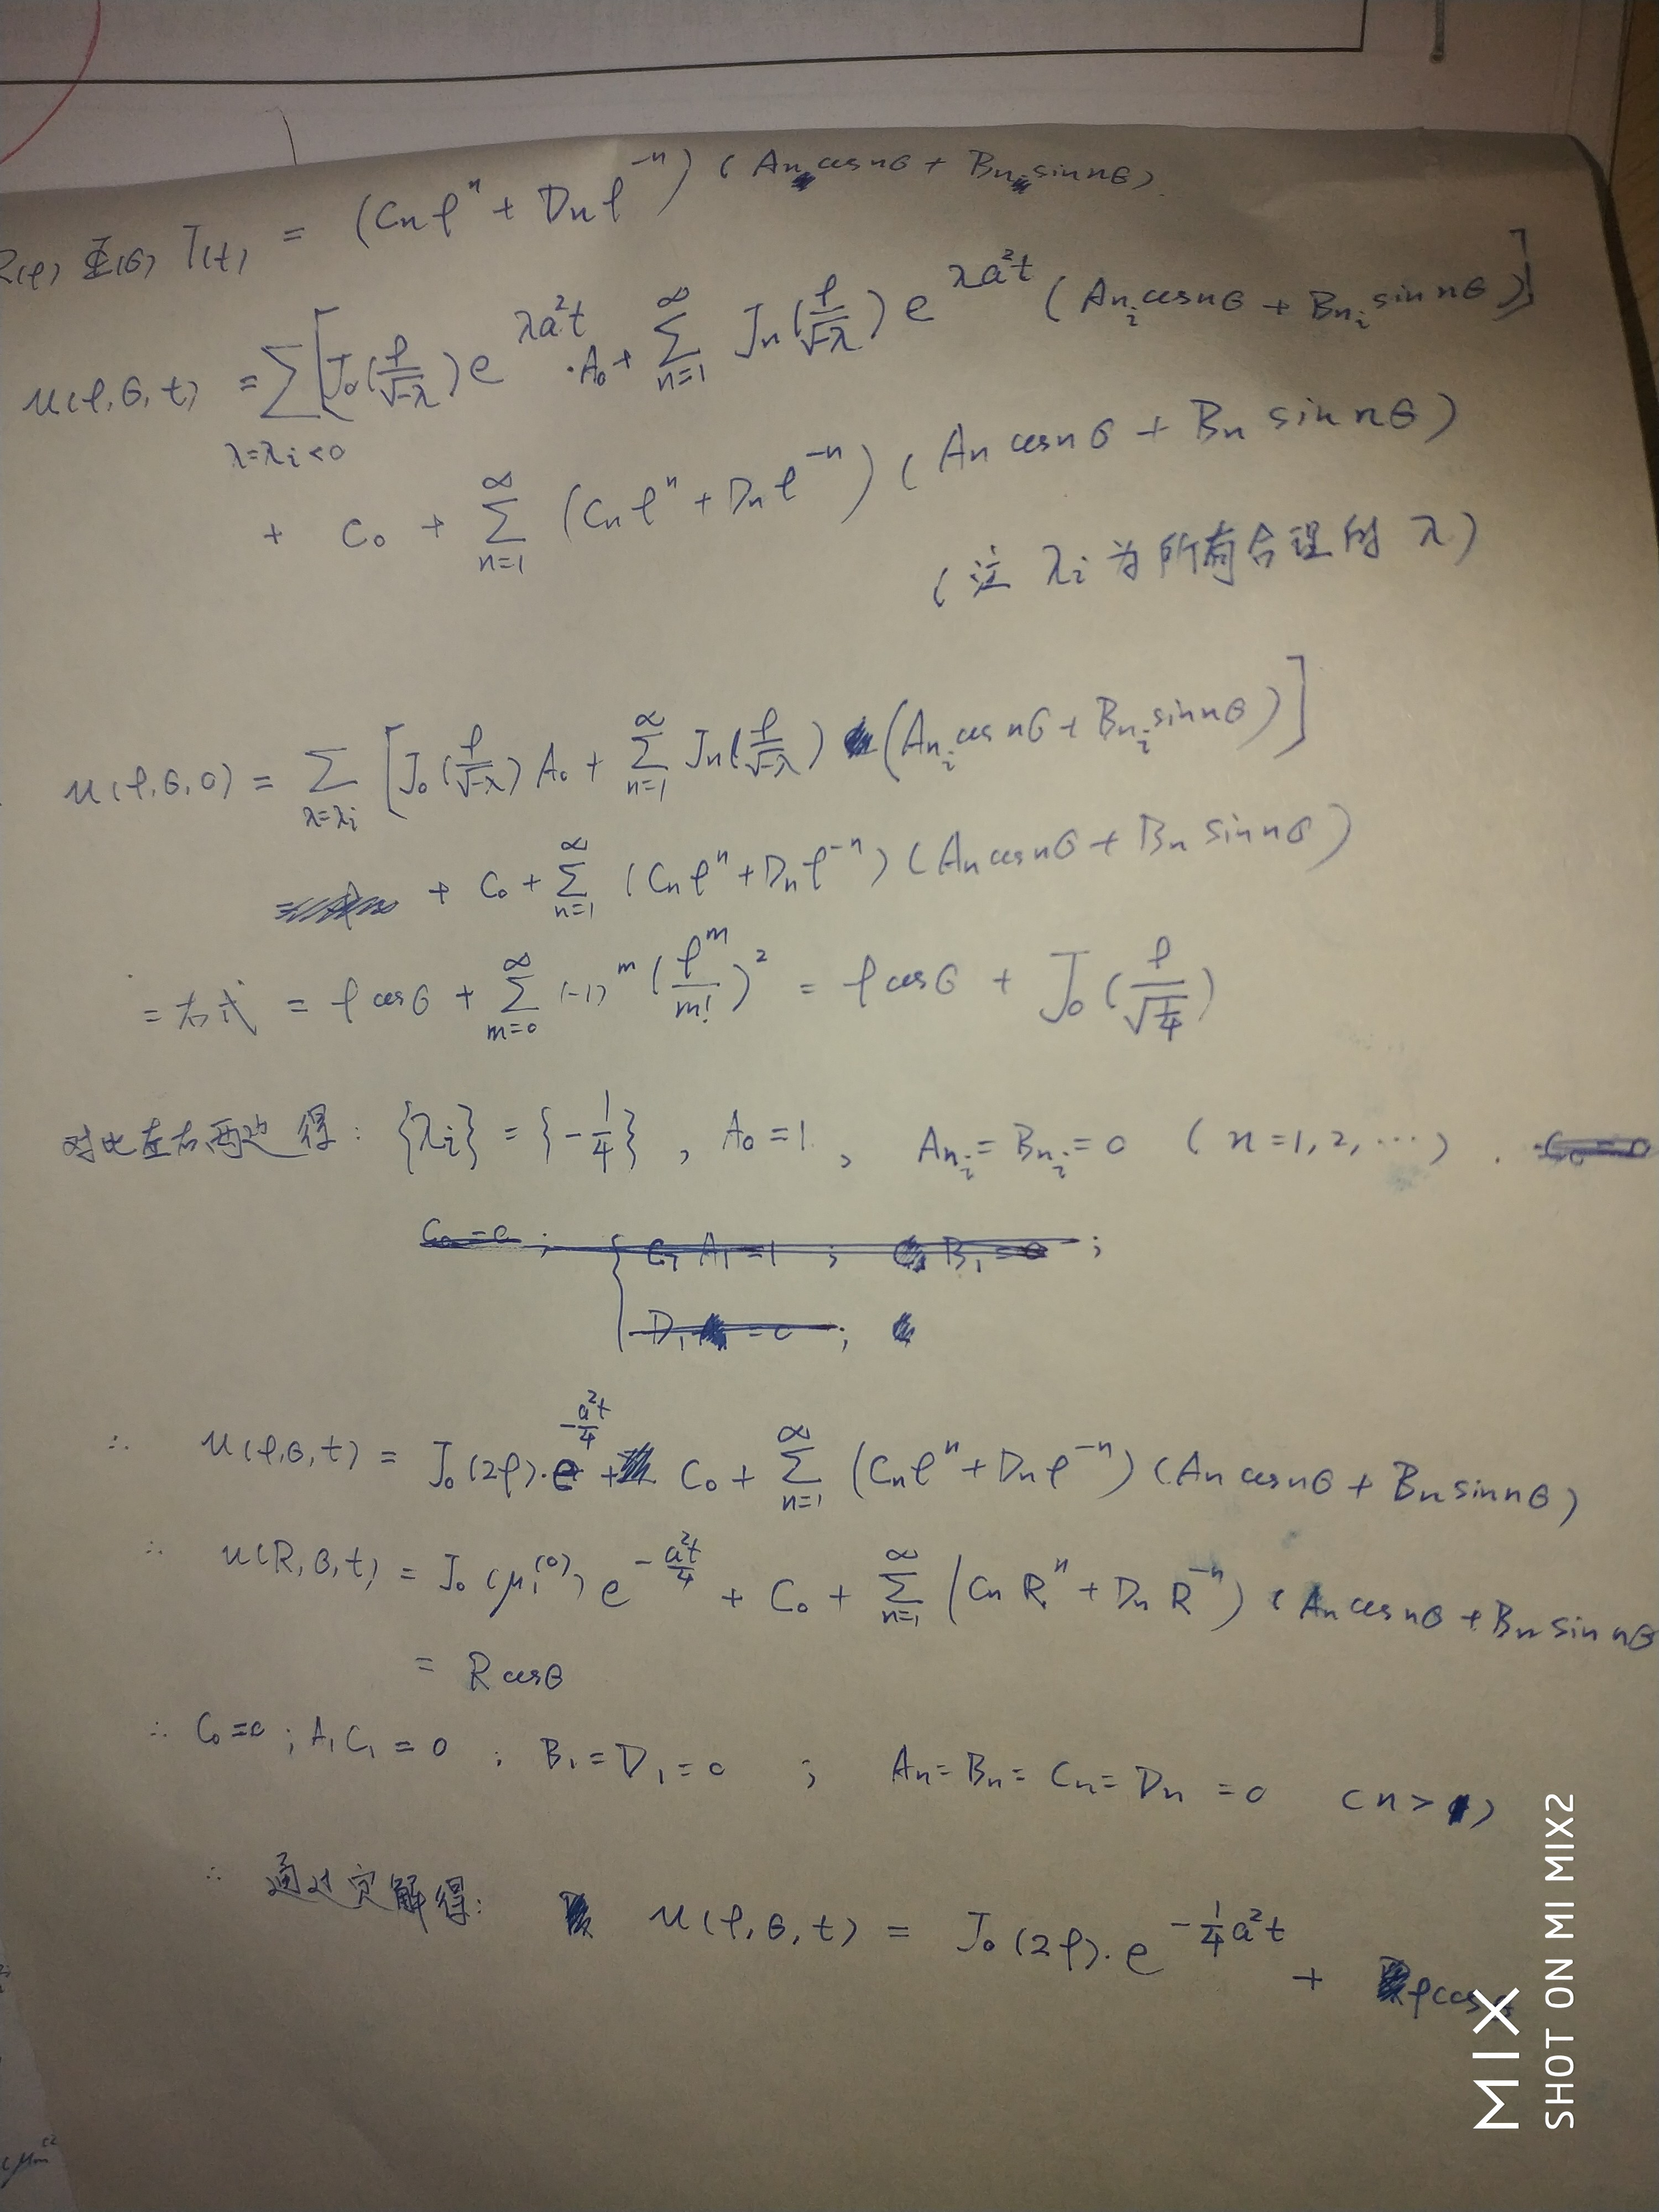 R(ρ) Φ(θ) T(t) = (Cₙρⁿ + Dₙρ⁻ⁿ) (Aₙ cos nθ + Bₙ sin nθ).
u(ρ,θ,t) = Σ_{λ=λᵢ<0} [J₀(ρ/√-λ) e^{λa²t}·A₀ + Σ_{n=1}^{∞} Jₙ(ρ/√-λ) e^{λa²t} (Aₙᵢ cos nθ + Bₙᵢ sin nθ)]
+ C₀ + Σ_{n=1}^{∞} (Cₙρⁿ + Dₙρ⁻ⁿ) (Aₙ cos nθ + Bₙ sin nθ)
(注 λᵢ为所有合理的 λ)
u(ρ,θ,0) = Σ_{λ=λᵢ} [J₀(ρ/√-λ) A₀ + Σ_{n=1}^{∞} Jₙ(ρ/√-λ) (Aₙᵢ cos nθ + Bₙᵢ sin nθ)]
+ C₀ + Σ_{n=1}^{∞} (Cₙρⁿ + Dₙρ⁻ⁿ) (Aₙ cos nθ + Bₙ sin nθ)
= 右式 = ρ cosθ + Σ_{m=0}^{∞} (-1)^m (ρ^m/m!)² = ρ cosθ + J₀(ρ/√(1/4))
对比左右两边得: {λᵢ} = {-1/4}, A₀ = 1, Aₙᵢ = Bₙᵢ = 0 (n = 1, 2, ⋯). C₀ = 0
C₀ = 0; { C₁A₁ = 1; B₁ = 0;
D₁ = 0;
∴ u(ρ,θ,t) = J₀(2ρ)·e^{-a²t/4} + C₀ + Σ_{n=1}^{∞} (Cₙρⁿ + Dₙρ⁻ⁿ) (Aₙ cos nθ + Bₙ sin nθ)
∴ u(R,θ,t) = J₀(μ₁⁽⁰⁾) e^{-a²t/4} + C₀ + Σ_{n=1}^{∞} (Cₙ Rⁿ + Dₙ R⁻ⁿ) (Aₙ cos nθ + Bₙ sin nθ
= R cosθ
∴ C₀ = 0; A₁C₁ = 0; B₁ = D₁ = 0; Aₙ = Bₙ = Cₙ = Dₙ = 0 (n > 1)
∴ 通过定解得: u(ρ,θ,t) = J₀(2ρ)·e^{-1/4 a²t} + ρ cosθ
MIX
SHOT ON MI MIX2